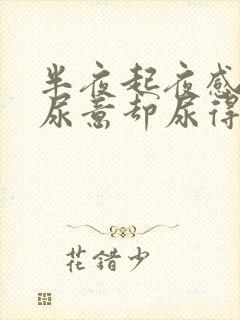 半夜起夜感
尿意却尿得
花错少